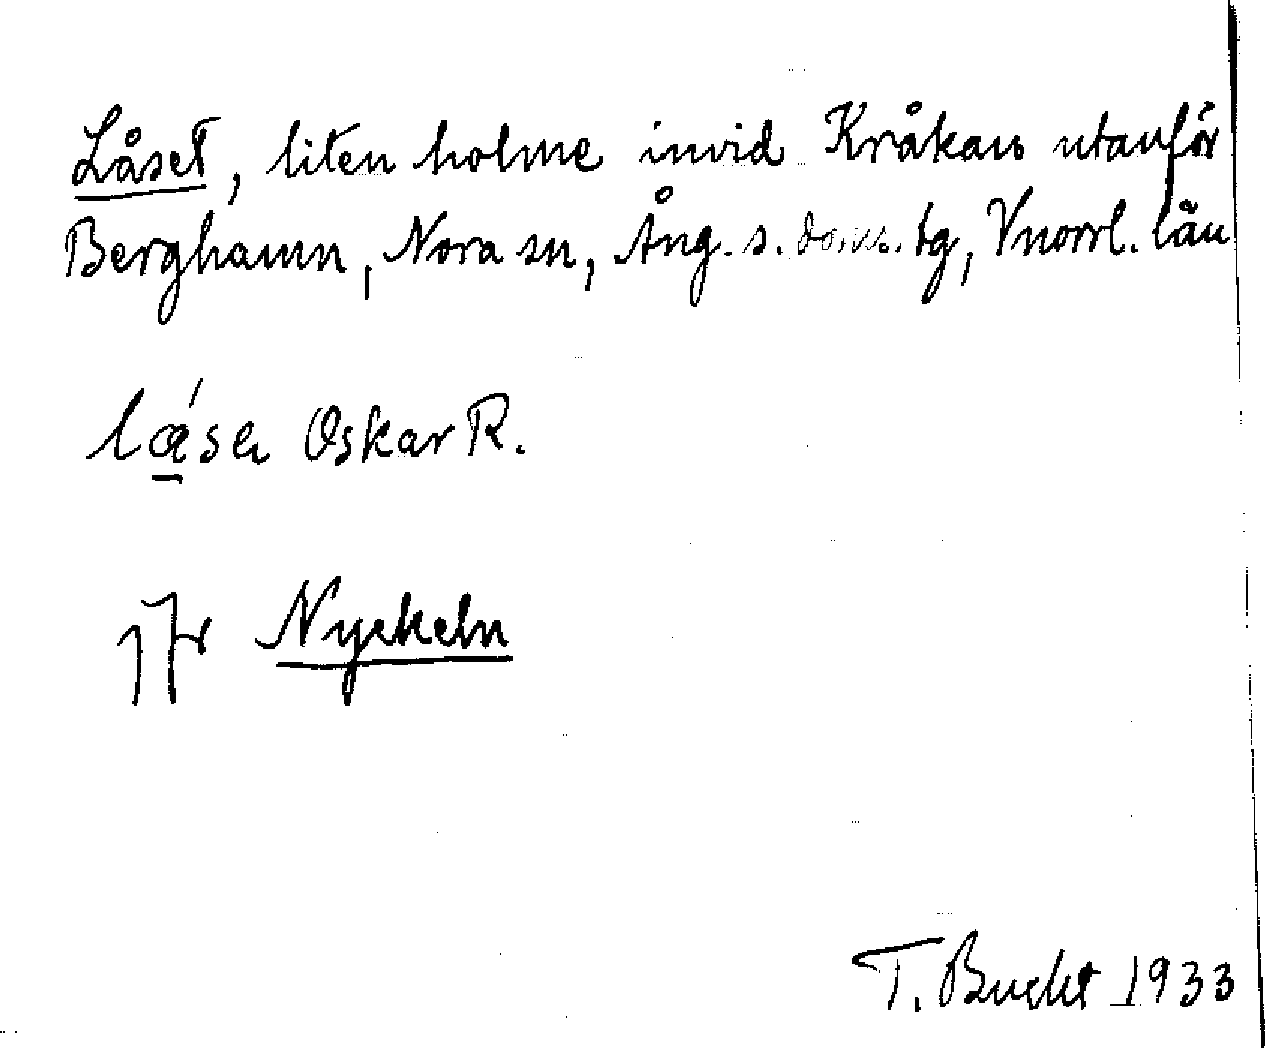 Låset, liten holme invid Kråkan utanför
Berghamn, Nora sn, Ång. s. doms. tg, Vnorrl. län
Oskar R.
jfr Nyckeln
T. Bucht 1933